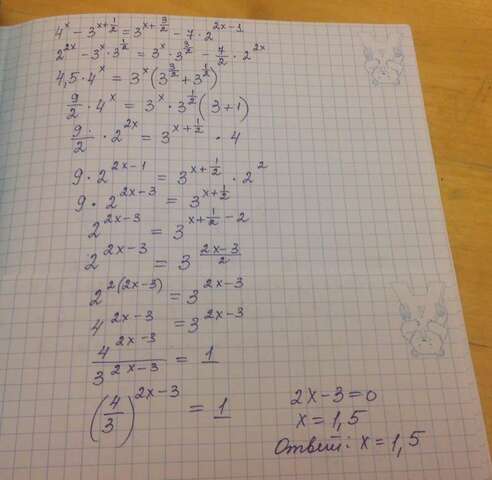 4^x - 3^{x+\frac{1}{2}} = 3^{x+\frac{3}{2}} - 7 · 2^{2x-1}
2^{2x} - 3^x · 3^{\frac{1}{2}} = 3^x · 3^{\frac{3}{2}} - \frac{7}{2} · 2^{2x}
4,5 · 4^x = 3^x (3^{\frac{3}{2}} + 3^{\frac{1}{2}})
\frac{9}{2} · 4^x = 3^x · 3^{\frac{1}{2}} (3+1)
\frac{9}{2} · 2^{2x} = 3^{x+\frac{1}{2}} · 4
9 · 2^{2x-1} = 3^{x+\frac{1}{2}} · 2^2
9 · 2^{2x-3} = 3^{x+\frac{1}{2}}
2^{2x-3} = 3^{x+\frac{1}{2}-2}
2^{2x-3} = 3^{\frac{2x-3}{2}}
2^{2(2x-3)} = 3^{2x-3}
4^{2x-3} = 3^{2x-3}
\frac{4^{2x-3}}{3^{2x-3}} = 1
(\frac{4}{3})^{2x-3} = 1
2x-3=0
x=1,5
Ответ: x=1,5